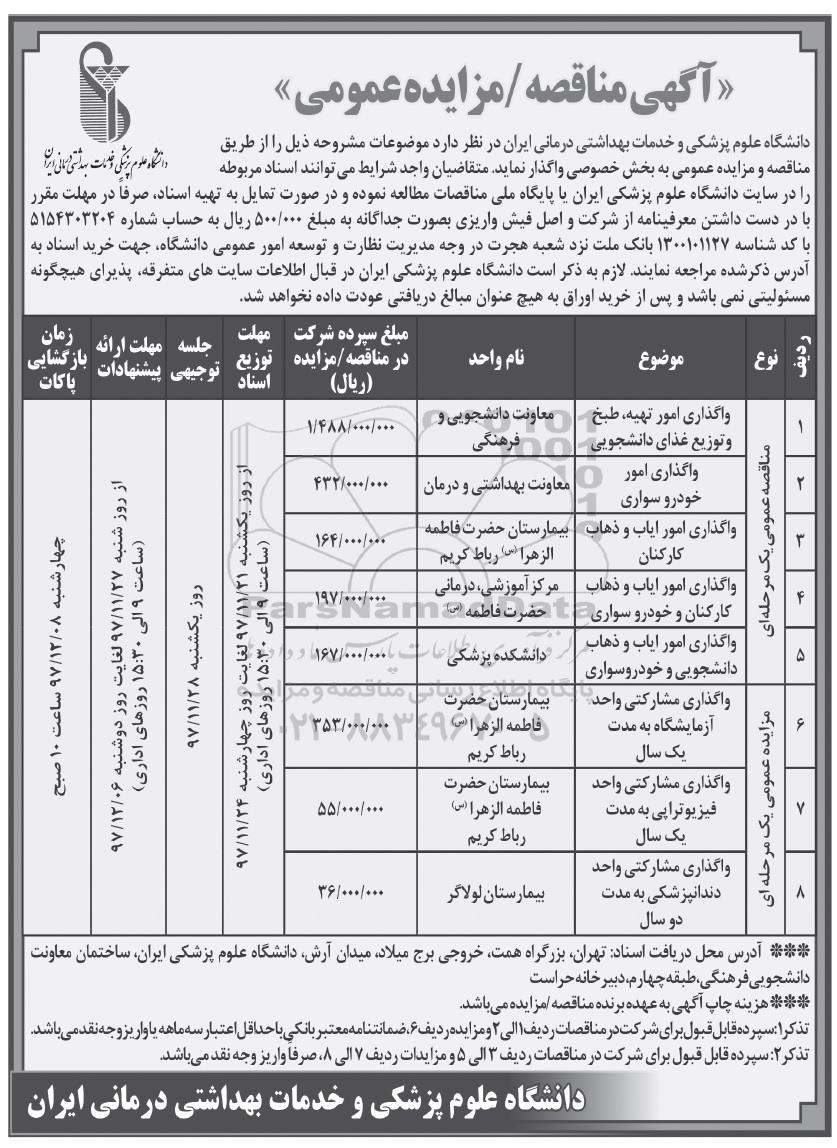 «آگهی مناقصه/مزایده عمومی»
دانشگاه علوم پزشکی و خدمات بهداشتی درمانی ایران
دانشگاه علوم پزشکی و خدمات بهداشتی درمانی ایران در نظر دارد موضوعات مشروحه ذیل را از طریق
مناقصه و مزایده عمومی به بخش خصوصی واگذار نماید. متقاضیان واجد شرایط می توانند اسناد مربوطه
را در سایت دانشگاه علوم پزشکی ایران یا پایگاه ملی مناقصات مطالعه نموده و در صورت تمایل به تهیه اسناد، صرفاً در مهلت مقرر
با در دست داشتن معرفینامه از شرکت و اصل فیش واریزی بصورت جداگانه به مبلغ ۵۰۰/۰۰۰ ریال به حساب شماره ۵۱۵۴۳۰۳۲۰۴
با کد شناسه ۱۳۰۰۱۰۱۱۲۷ بانک ملت نزد شعبه هجرت در وجه مدیریت نظارت و توسعه امور عمومی دانشگاه، جهت خرید اسناد به
آدرس ذکرشده مراجعه نمایند. لازم به ذکر است دانشگاه علوم پزشکی ایران در قبال اطلاعات سایت های متفرقه، پذیرای هیچگونه
مسئولیتی نمی باشد و پس از خرید اوراق به هیچ عنوان مبالغ دریافتی عودت داده نخواهد شد.
ردیف
نوع
موضوع
نام واحد
مبلغ سپرده شرکت
در مناقصه/مزایده
(ریال)
مهلت
توزیع
اسناد
جلسه
توجیهی
مهلت ارائه
پیشنهادات
زمان
بازگشایی
پاکات
مناقصه عمومی یک مرحله ای
۱
واگذاری امور تهیه، طبخ
وتوزیع غذای دانشجویی
معاونت دانشجویی و
فرهنگی
۱/۴۸۸/۰۰۰/۰۰۰
۲
واگذاری امور
خودرو سواری
معاونت بهداشتی و درمان
۴۳۲/۰۰۰/۰۰۰
۳
واگذاری امور ایاب و ذهاب
کارکنان
بیمارستان حضرت فاطمه
الزهرا (س) رباط کریم
۱۶۴/۰۰۰/۰۰۰
۴
واگذاری امور ایاب و ذهاب
کارکنان و خودرو سواری
مرکز آموزشی، درمانی
حضرت فاطمه (س)
۱۹۷/۰۰۰/۰۰۰
۵
واگذاری امور ایاب و ذهاب
دانشجویی و خودروسواری
دانشکده پزشکی
۱۶۷/۰۰۰/۰۰۰
مزایده عمومی یک مرحله ای
۶
واگذاری مشارکتی واحد
آزمایشگاه به مدت
یک سال
بیمارستان حضرت
فاطمه الزهرا (س)
رباط کریم
۳۵۳/۰۰۰/۰۰۰
۷
واگذاری مشارکتی واحد
فیزیوتراپی به مدت
یک سال
بیمارستان حضرت
فاطمه الزهرا (س)
رباط کریم
۵۵/۰۰۰/۰۰۰
۸
واگذاری مشارکتی واحد
دندانپزشکی به مدت
دو سال
بیمارستان لولاگر
۳۶/۰۰۰/۰۰۰
از روز یکشنبه ۹۷/۱۱/۲۱ لغایت روز چهارشنبه ۹۷/۱۱/۲۴
(ساعت ۹ الی ۱۵:۳۰ روزهای اداری)
روز یکشنبه ۹۷/۱۱/۲۸
از روز شنبه ۹۷/۱۱/۲۷ لغایت روز دوشنبه ۹۷/۱۲/۰۶
(ساعت ۹ الی ۱۵:۳۰ روزهای اداری)
چهارشنبه ۹۷/۱۲/۰۸ ساعت ۱۰ صبح
ParsNamadData
پایگاه اطلاع رسانی مناقصه و مزایده
۰۲۱-۸۸۳۴۹۶۷۰-۵
*** آدرس محل دریافت اسناد: تهران، بزرگراه همت، خروجی برج میلاد، میدان آرش، دانشگاه علوم پزشکی ایران، ساختمان معاونت
دانشجویی فرهنگی، طبقه چهارم، دبیرخانه حراست
*** هزینه چاپ آگهی به عهده برنده مناقصه/مزایده می باشد.
تذکر۱: سپرده قابل قبول برای شرکت در مناقصات ردیف ۱ الی ۲ و مزایده ردیف ۶، ضمانتنامه معتبر بانکی با حداقل اعتبار سه ماهه یا واریز وجه نقد می باشد.
تذکر۲: سپرده قابل قبول برای شرکت در مناقصات ردیف ۳ الی ۵ و مزایدات ردیف ۷ الی ۸، صرفاً واریز وجه نقد می باشد.
دانشگاه علوم پزشکی و خدمات بهداشتی درمانی ایران